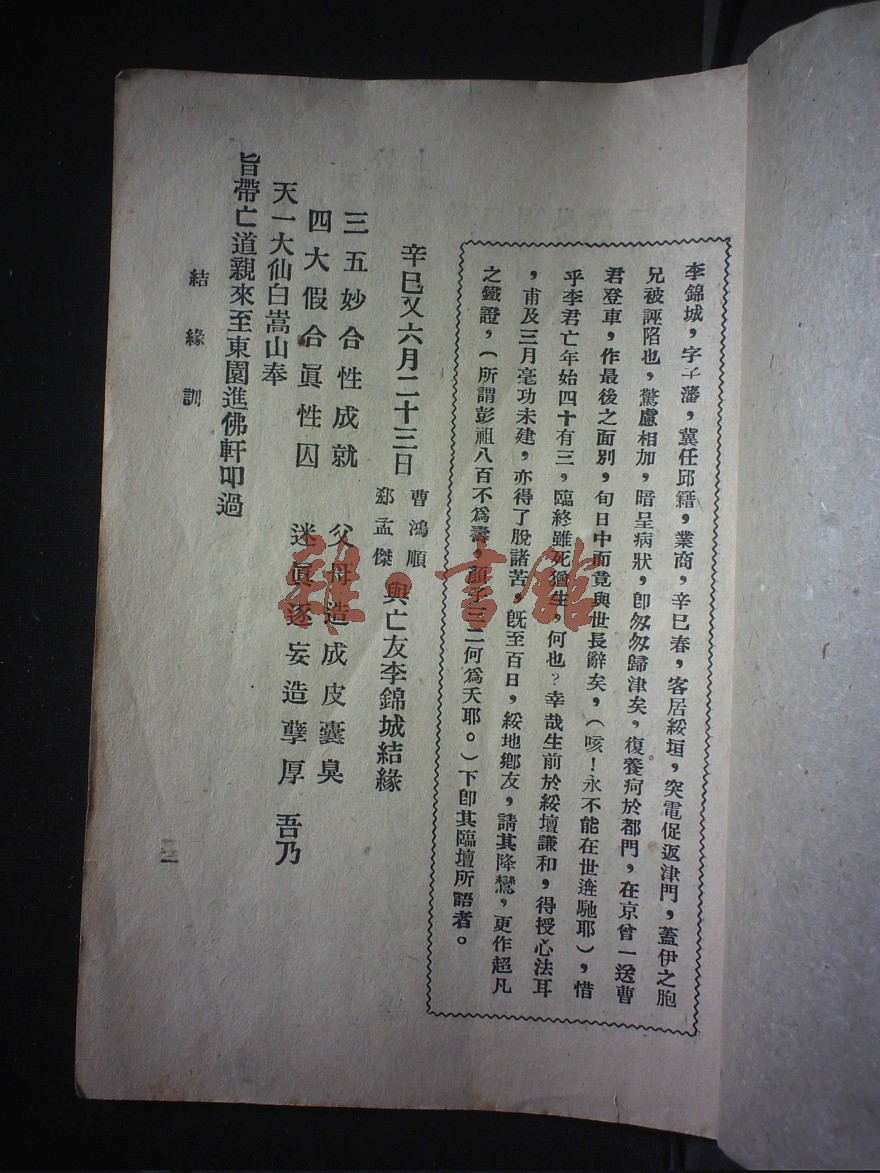 李錦城，字子藩，冀任邱籍，業商，辛巳春，客居綏垣，突電促返津門，蓋伊之胞
兄被誣陷也，驚慮相加，暗呈病狀，卽匆匆歸津矣，復養疴於都門，在京曾一送曹
君登車，作最後之面別，旬日中而竟與世長辭矣，（咳！永不能在世遊馳耶），惜
乎李君亡年始四十有三，臨終雖死猶生，何也？幸哉生前於綏壇謙和，得授心法耳
，甫及三月毫功未建，亦得了脫諸苦，旣至百日，綏地鄉友，請其降鸞，更作超凡
之鐵證，（所謂彭祖八百不爲壽，顏子三二何爲夭耶。）下卽其臨壇所語者。
辛巳又六月二十三日 曹鴻順 郄孟傑 與亡友李錦城結緣
三五妙合性成就 父母造成皮囊臭
四大假合眞性囚 迷眞逐妄造孽厚 吾乃
天一大仙白嵩山奉
旨帶亡道親來至東園進佛軒叩過
結緣訓 二
雜·書館